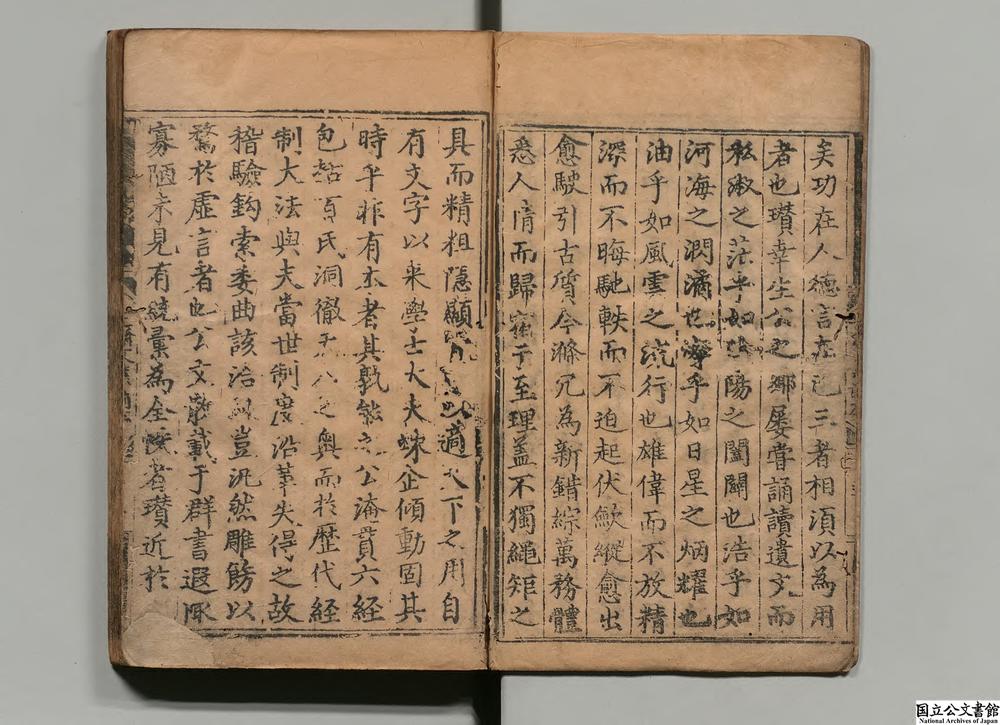 矣功在人德言在己三者相須以為用
者也瓚幸生公之鄉屢嘗誦讀遺文而
私淑之茫乎如陰陽之闔闢也浩乎如
河海之洶潏也濟乎如日星之炳耀也
油乎如風雲之流行也雄偉而不放精
深而不晦馳軼而不迫起伏歛縱愈出
愈駛引古質今滌冗為新錯綜萬務體
悉人情而歸宿于至理蓋不獨繩矩之
具而精粗隱顯以適天下之用自
有文字以來學士大夫竦企傾動固其
時乎非有本者其孰能之公淹貫六經
包括百氏洞徹天人之奧而於歷代經
制大法與夫當世制度沿革失得之故
稽驗鈎索委曲該洽豈汎然雕飾以
騖於虛言者也公文散載于群書遐陬
寡陋未見有統彙為全者瓚近於
国立公文書館
National Archives of Japan